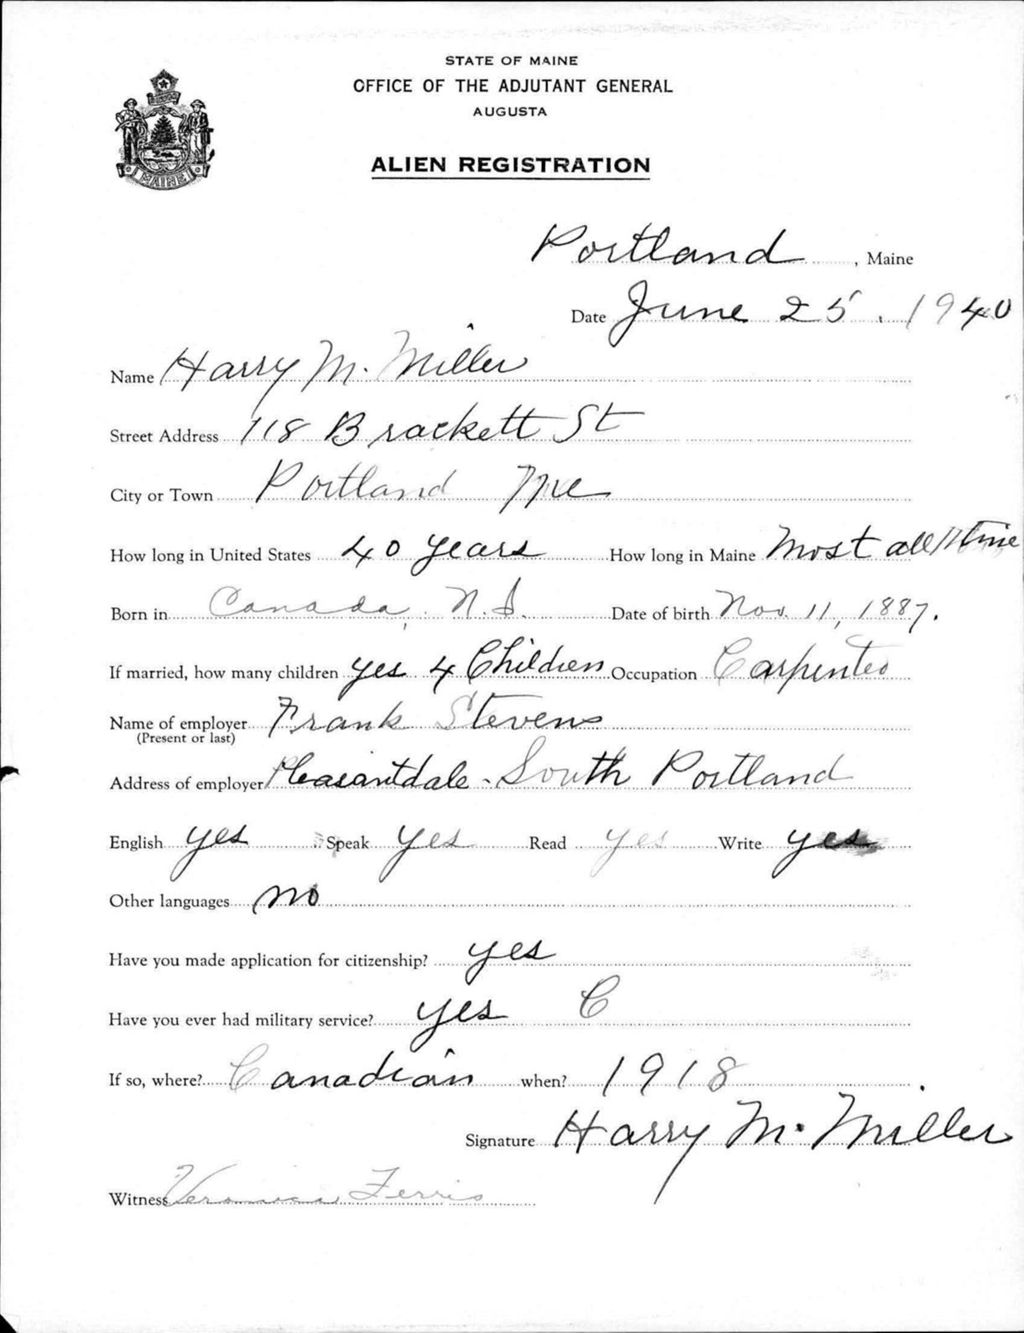 STATE OF MAINE
OFFICE OF THE ADJUTANT GENERAL
AUGUSTA
ALIEN REGISTRATION
MAINE
Portland, Maine
Date June 25, 1940
Name Harry M. Miller
Street Address 118 Brackett St
City or Town Portland Me
How long in United States 40 years How long in Maine Most all time
Born in Canada, N.S. Date of birth Nov. 11, 1887.
If married, how many children yes 4 Children Occupation Carpenter
Name of employer Frank Stevens
(Present or last)
Address of employer Pleasantdale - South Portland
English yes Speak yes Read yes Write yes
Other languages no
Have you made application for citizenship? yes
Have you ever had military service? yes C
If so, where? Canadian when? 1918
Signature Harry M. Miller
Witness Veronica Ferris